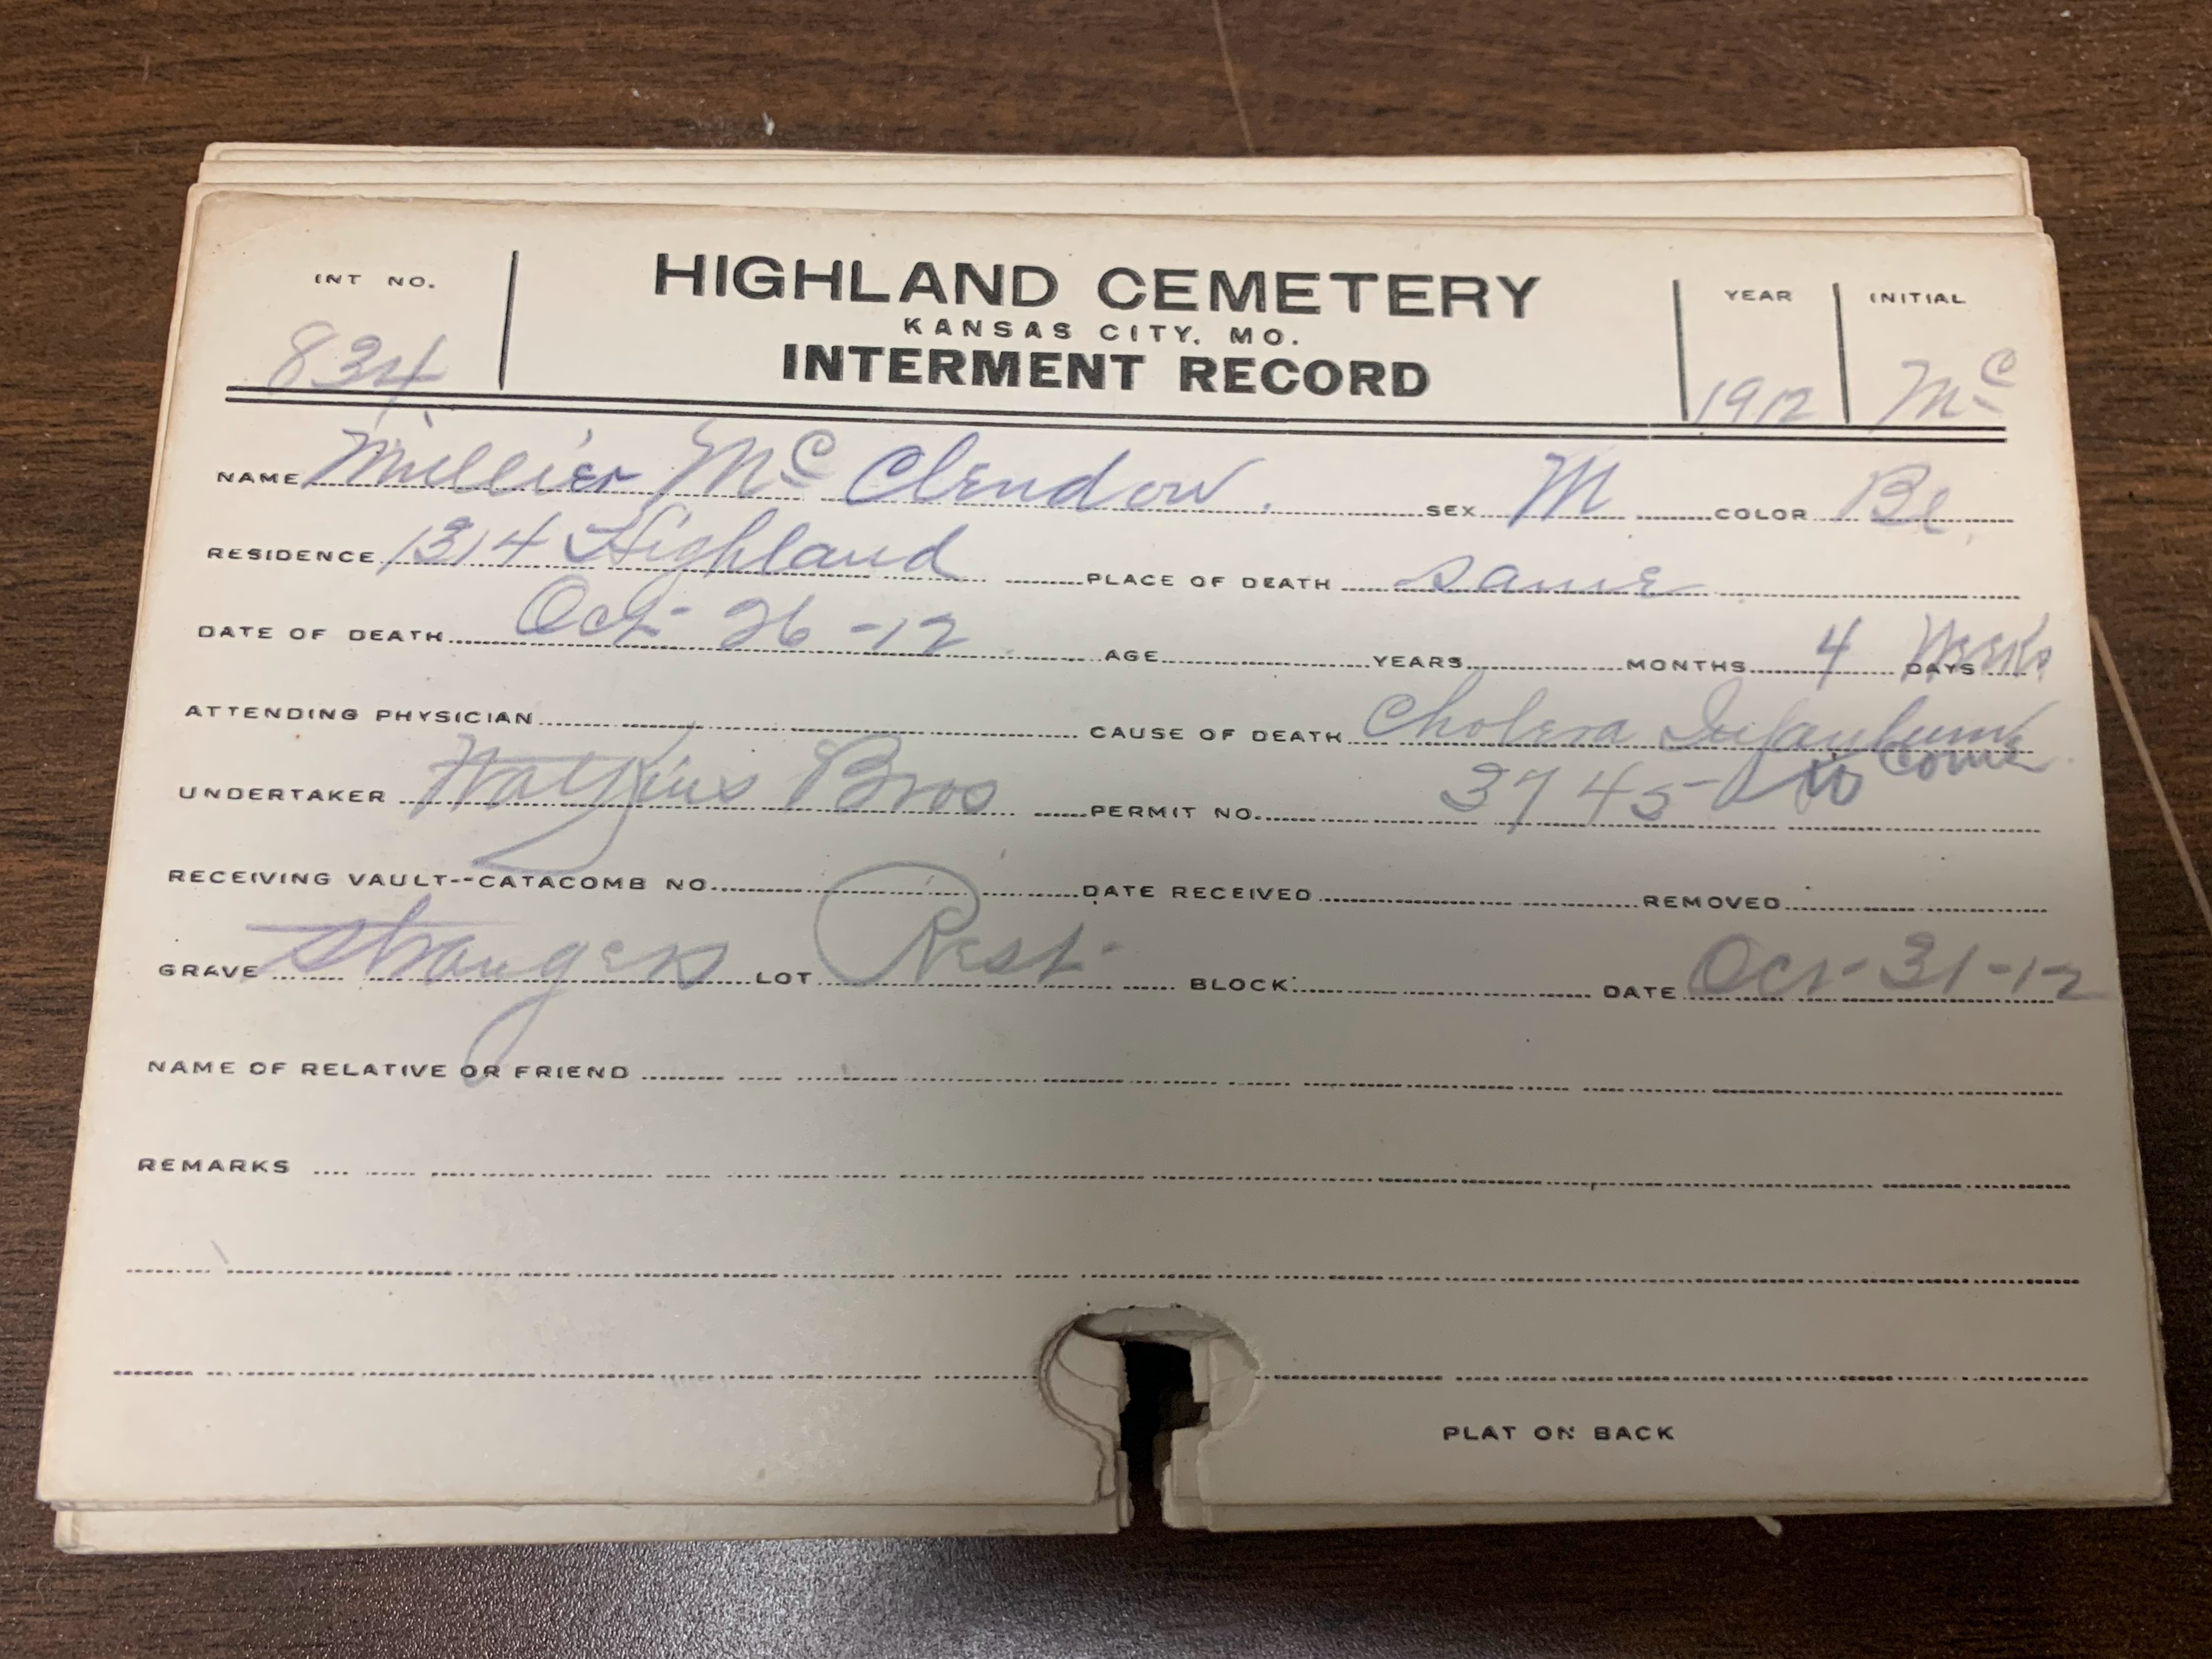 INT NO. HIGHLAND CEMETERY YEAR INITIAL
KANSAS CITY, MO.
834 INTERMENT RECORD 1912 Mc
NAME Millier Mc Clendon. SEX M COLOR Bl.
RESIDENCE 1314 Highland PLACE OF DEATH same
DATE OF DEATH Oct-26-12 AGE YEARS MONTHS 4 DAYS Weeks
ATTENDING PHYSICIAN CAUSE OF DEATH Cholera Infantum
UNDERTAKER Watkins Bros PERMIT NO. 3745 Come
RECEIVING VAULT--CATACOMB NO. DATE RECEIVED REMOVED
GRAVE Strangers LOT Rest BLOCK DATE Oct-31-12
NAME OF RELATIVE OR FRIEND
REMARKS
PLAT ON BACK